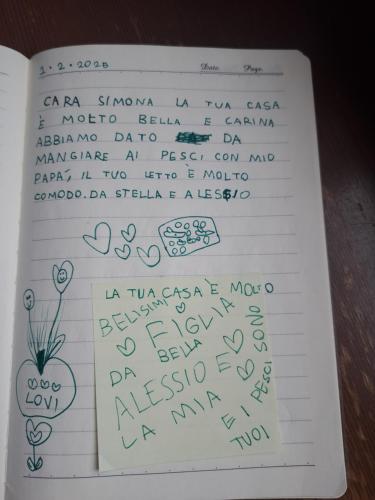 1.2.2025
Date. Page.
CARA SIMONA LA TUA CASA
È MOLTO BELLA E CARINA
ABBIAMO DATO DA
MANGIARE AI PESCI CON MIO
PAPÁ, IL TUO LETTO È MOLTO
COMODO. DA STELLA E ALESSIO
LOVI
LA TUA CASA È MOLTO
BELLA
DA
ALESSIO E
LA MIA
FIGLIA
E I PESCI SONO
TUOI
BELISIMI